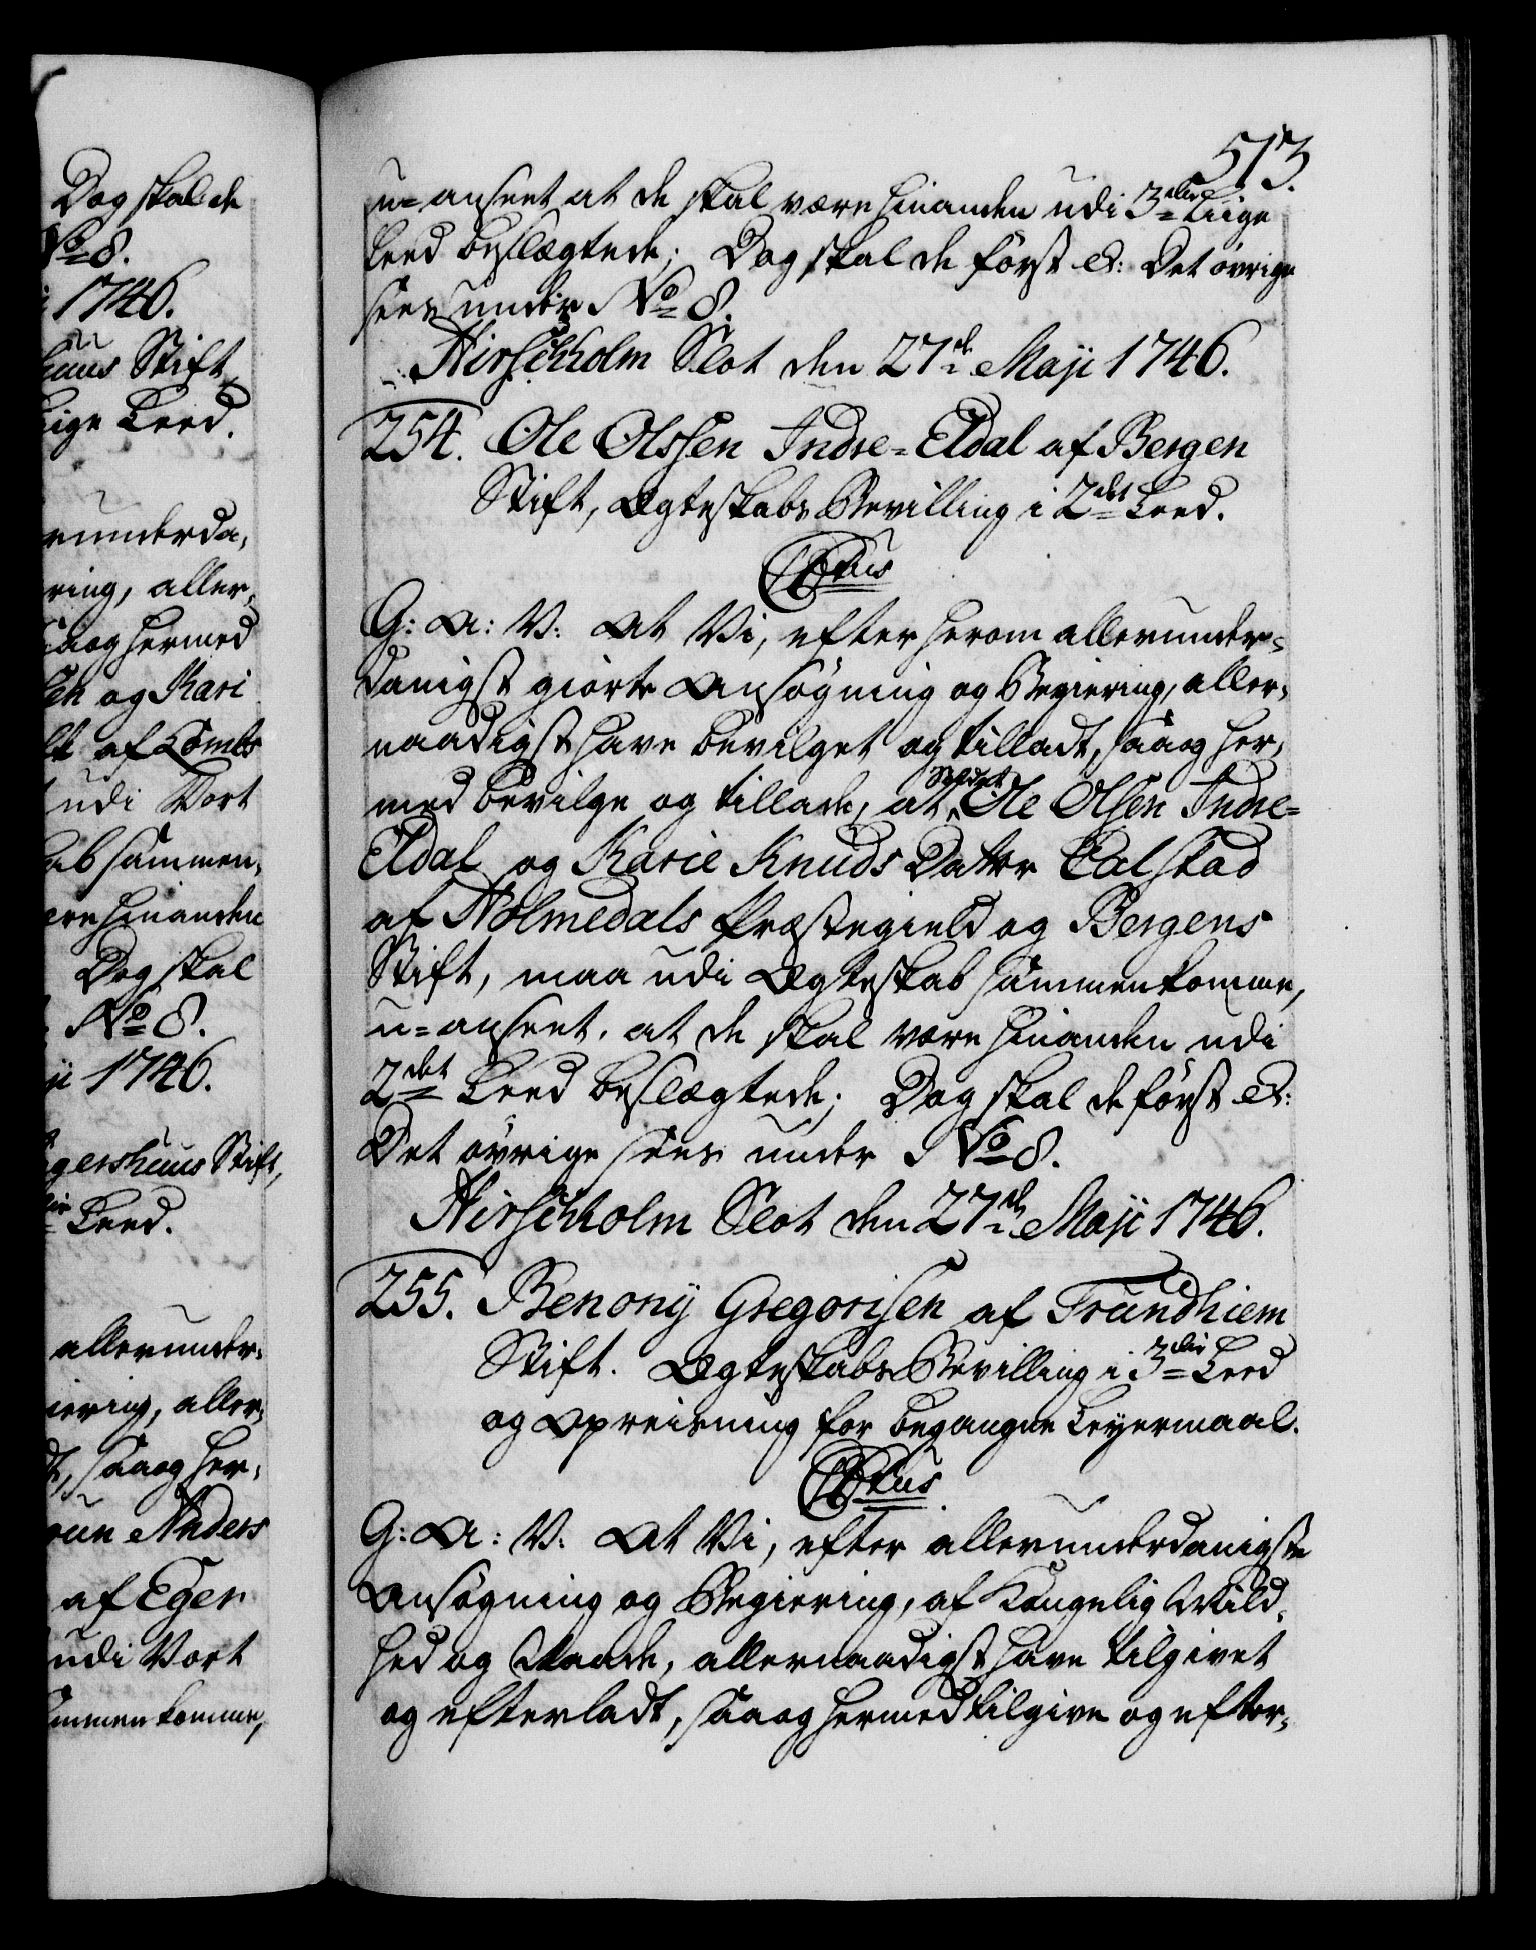 Dog skal de
No 8.
1746.
huus Stift
Liige Leed.
runderda,
ring, aller,
saa og hermed
sen og Kari
af Lomb
udi Vort
ab sammen,
ere hinanden
Dog skal
No 8.
ji 1746.
Agershuus Stift,
Leed.
allerunder,
iering, aller,
saa og her,
Anders
af Eger
udi Vort
ammenkomme,
513.
u=anseet at de skal være hinanden udi 3die Liige
Leed beslægtede; Dog skal de först &: Det övrige
sees under No 8.
Hirschholm Slot den 27de Maji 1746.
254. Ole Olssen Indre=Eldal af Bergen
Stift, Ægteskabs Bevilling i 2det Leed.
G: A: V: At Vi, efter herom allerunder=
danigst giorte Ansögning og Begiering, aller,
naadigst have bevilget og tilladt, saa og her,
med bevilge og tillade, at Soldat Ole Olsen Indre=
Eldal og Karie Knuds Datter Calstad
af Holmedals Præstegield og Bergens
Stift, maa udi Ægteskab sammenkomme,
u=anseet, at de skal være hinanden udi
2det Leed beslægtede; Dog skal de först &:
Det övrige sees under No 8.
Hirschholm Slot den 27de Maji 1746.
255. Benony Gregorisen af Trundhiem
Stift. Ægteskabs Bevilling i 3die Leed
og Opreisning for begangne Leyermaal.
G: A: V: At Vi, efter allerunderdanigste
Ansögning og Begiering, af Kongelig Mild,
hed og Naade, allernaadigst have tilgivet
og efterladt, saa og hermed tilgive og efter,